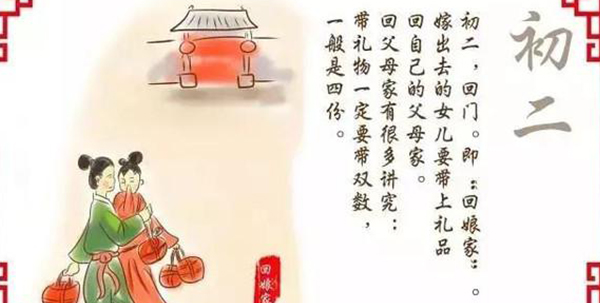 初二
初二，回门。即：“回娘家”。
嫁出去的女儿要带上礼品
回自己的父母家。
回父母家有很多讲究：
带礼物一定要带双数，
一般是四份。
回娘家